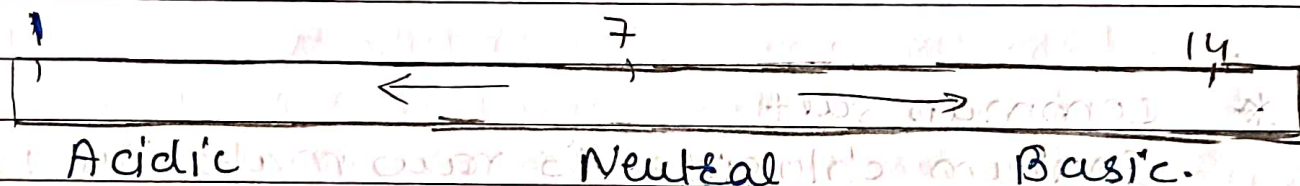 1 7 14
Acidic Neutral Basic.